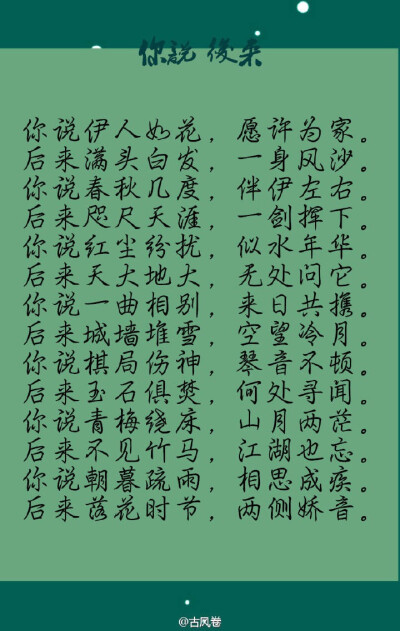 你說 後来
你说伊人如花，愿许为家。
后来满头白发，一身风沙。
你说春秋几度，伴伊左右。
后来咫尺天涯，一剑挥下。
你说红尘纷扰，似水年华。
后来天大地大，无处问它。
你说一曲相别，来日共携。
后来城墙堆雪，空望冷月。
你说棋局伤神，琴音不顿。
后来玉石俱焚，何处寻闻。
你说青梅绕床，山月两茫。
后来不见竹马，江湖也忘。
你说朝暮疏雨，相思成疾。
后来落花时节，两侧娇音。
@古风卷